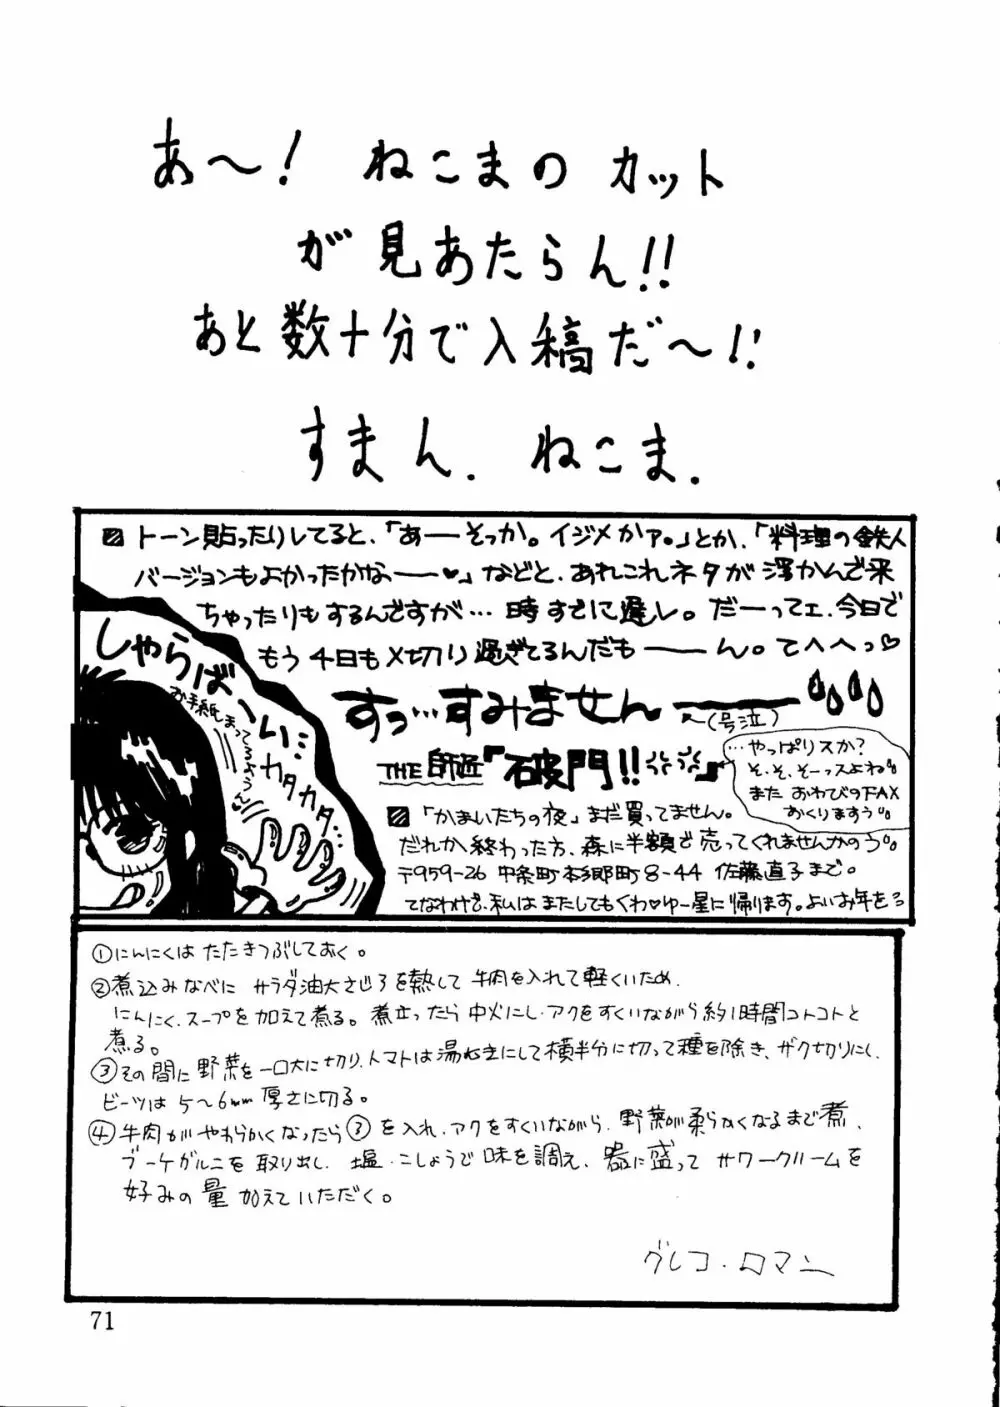 あ〜! ねこまの カット
が見あたらん!!
あと数十分で入稿だ〜!!
すまん. ねこま.
トーン貼ったりしてると、「あーーそっか。イジメかァ。」とか、「料理の鉄人
バージョンもよかったかなーー♥」などと、あれこれネタが浮かんで来
ちゃったりもするんですが…時すでに遅し。だーってェ、今日で
もう4日も〆切り過ぎてるんだもーーん。てへへっ♡
すっ…すみませーん
へ(号泣)
THE 師匠『破門!!』
…やっぱりスか?
そ、そ、そーっスよね
また おわびのFAX
おくりますぅ
しゃらば
お手紙まってるよぅん
カタカタ…
「かまいたちの夜」まだ買ってません。
だれか終わった方、森に半額で売ってくれませんかのう
〒959-26 中条町本郷町8-44 佐藤直子まで。
てなわけで、私はまたしてもくわ♥ゆー星に帰ります。よいお年を
①にんにくは たたきつぶしておく。
②煮込みなべに サラダ油大さじ3を熱して 牛肉を入れて軽くいため、
にんにく、スープを加えて煮る。煮立ったら中火にし、アクをすくいながら約1時間コトコトと
煮る。
③その間に野菜を一口大に切り、トマトは湯むきにして横半分に切って種を除き、ザク切りにし、
ビーツは5〜6mm厚さに切る。
④牛肉がやわらかくなったら③を入れ、アクをすくいながら、野菜が柔らかくなるまで煮、
ブーケガルニを取り出し、塩、こしょうで味を調え、器に盛って サワークリームを
好みの量 加えていただく。
グレコ・ロマン
71